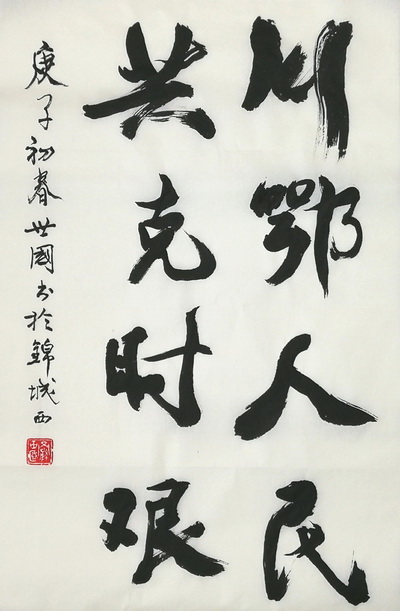 川鄂人民
共克时艰
庚子初春世國书於錦城西